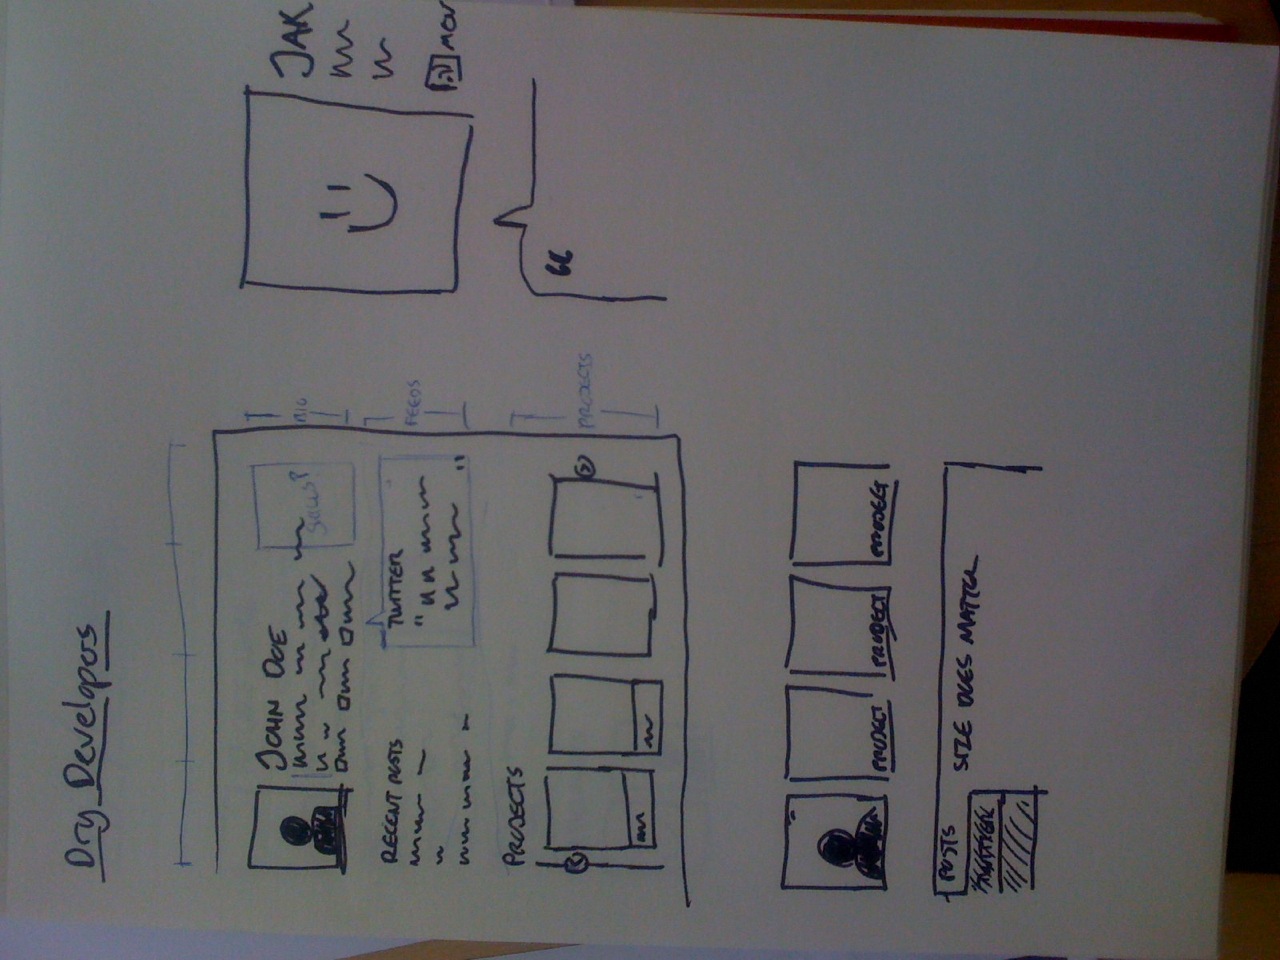 Dry Developers
JOHN DOE
BIO
RECENT POSTS
TWITTER
FEEDS
PROJECTS
PROJECTS
JAK
PROJECT
PROJECT
PROJECT
POSTS
SIZE DOES MATTER